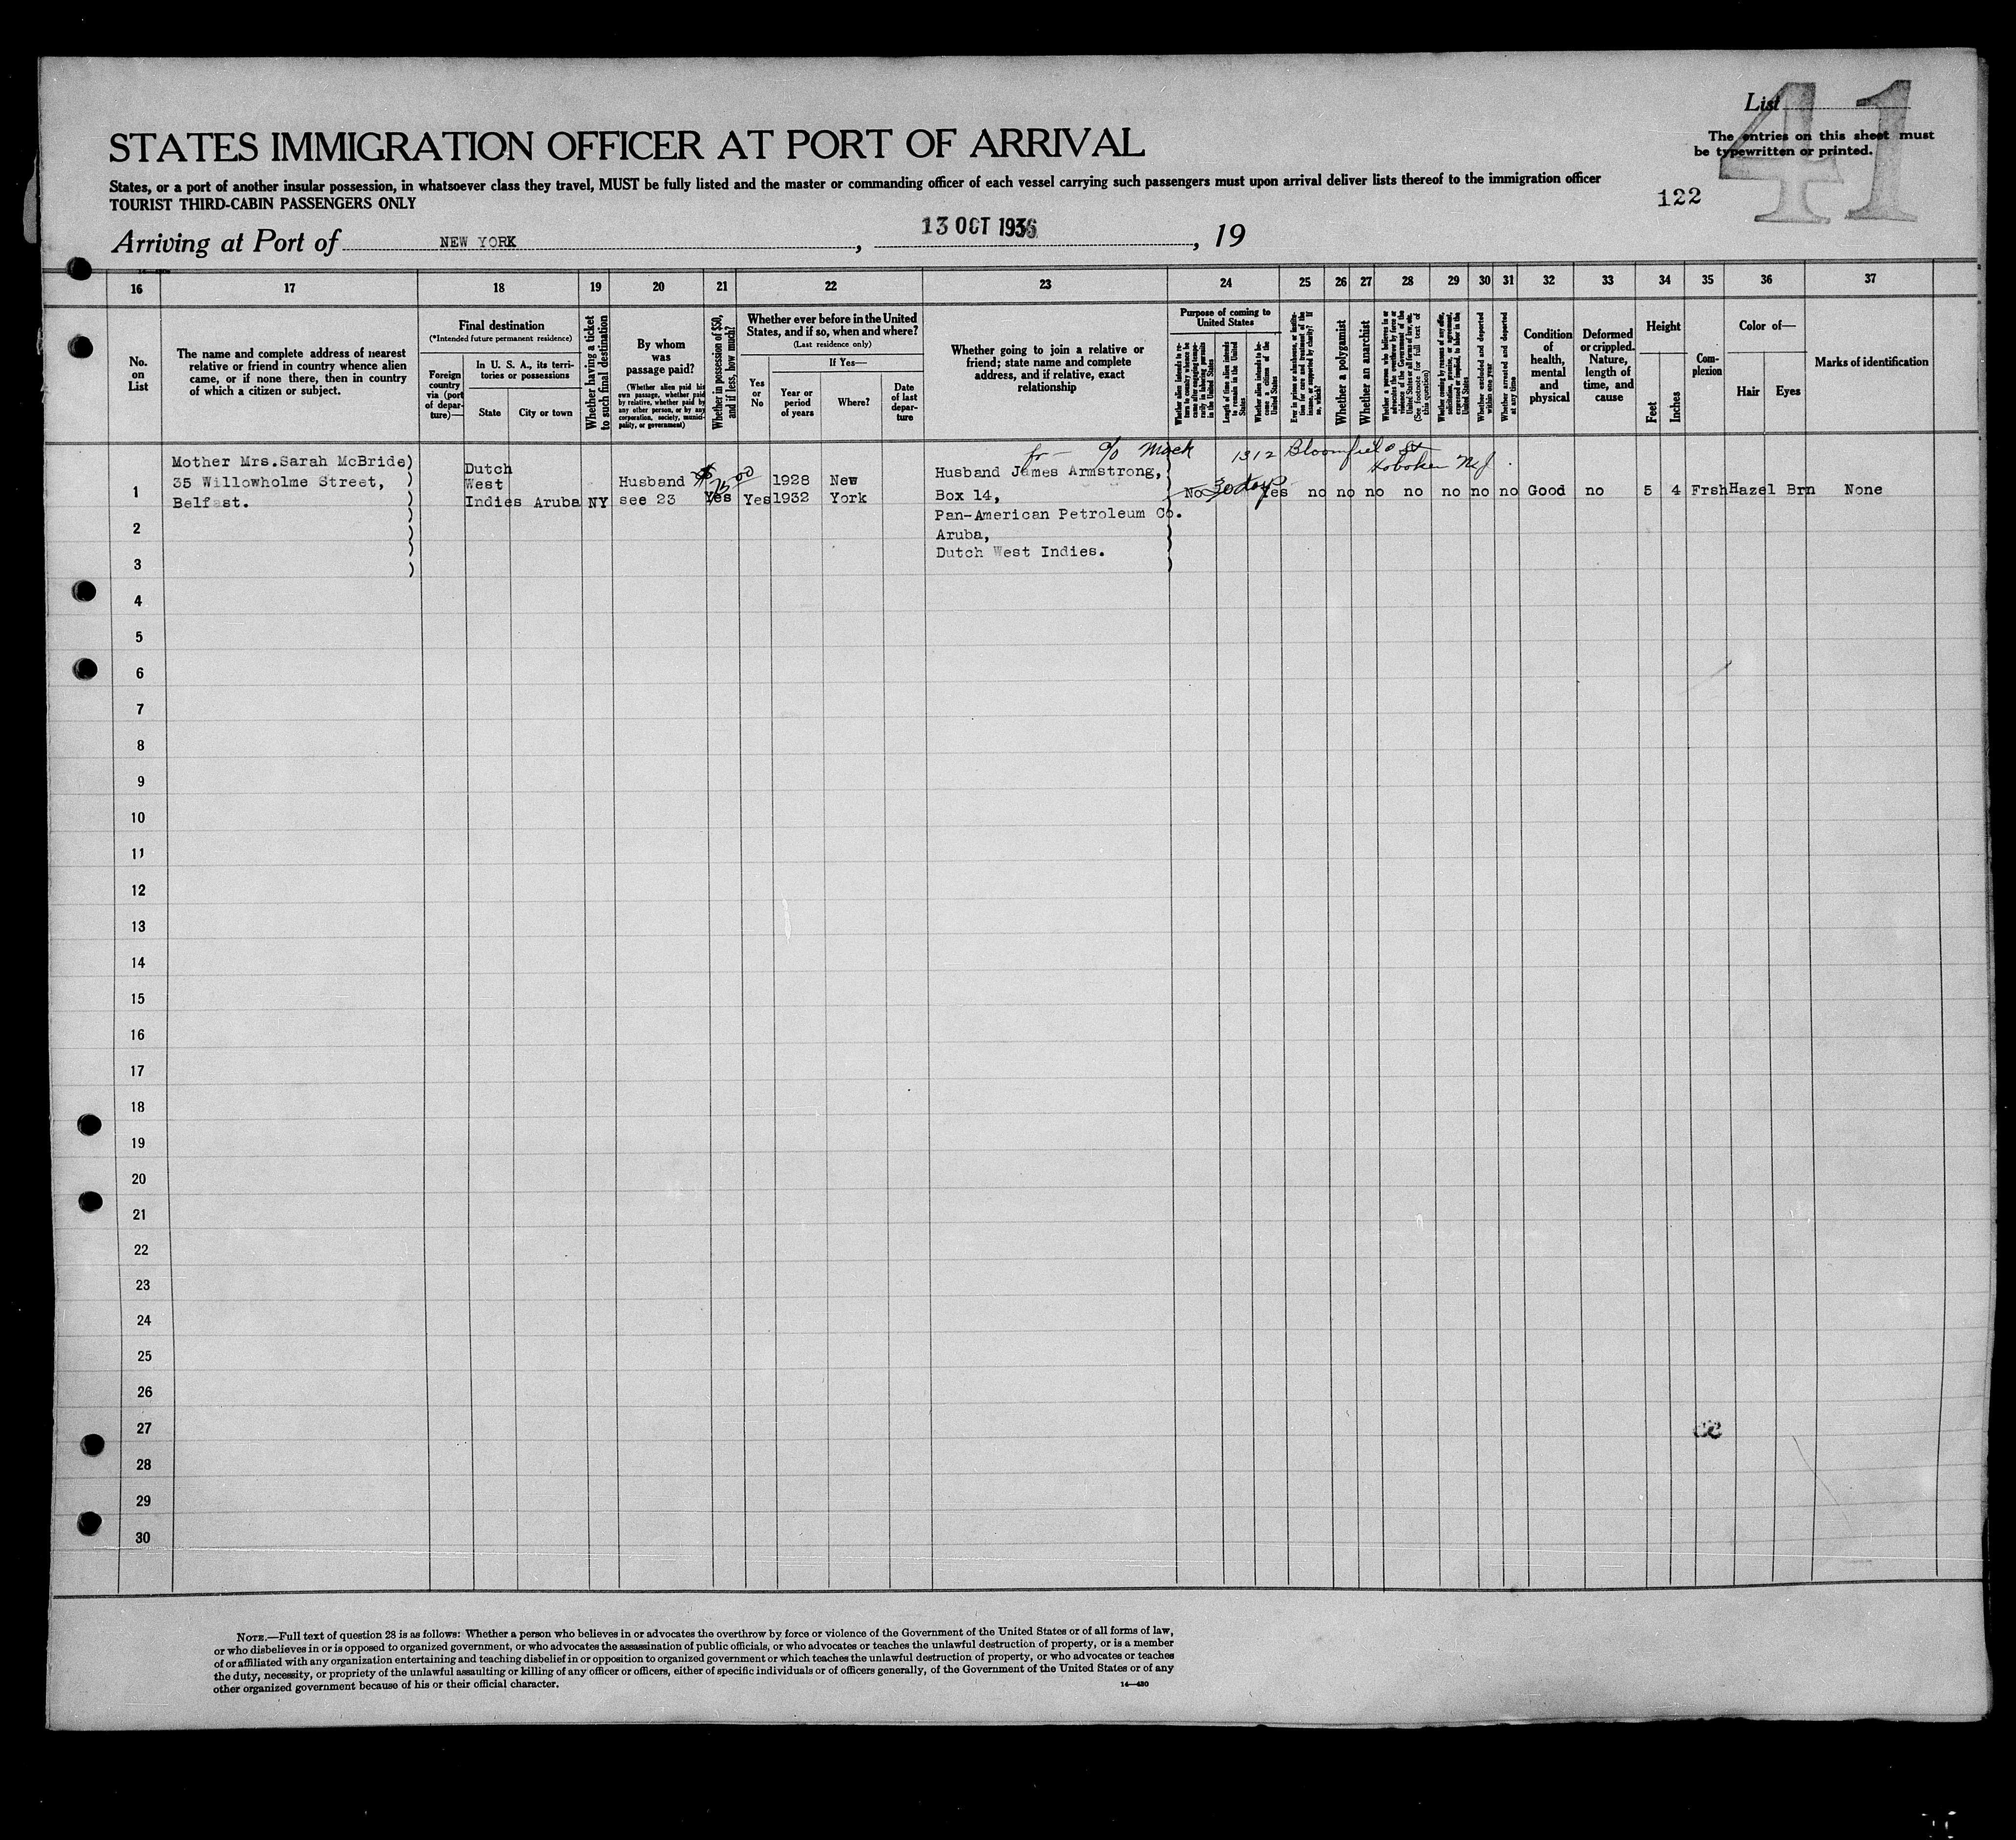 List
41
The entries on this sheet must
be typewritten or printed.
STATES IMMIGRATION OFFICER AT PORT OF ARRIVAL
States, or a port of another insular possession, in whatsoever class they travel, MUST be fully listed and the master or commanding officer of each vessel carrying such passengers must upon arrival deliver lists thereof to the immigration officer
TOURIST THIRD-CABIN PASSENGERS ONLY
122
Arriving at Port of NEW YORK, 13 OCT 1936, 19
16 17 18 19 20 21 22 23 24 25 26 27 28 29 30 31 32 33 34 35 36 37
No.
on
List
The name and complete address of nearest
relative or friend in country whence alien
came, or if none there, then in country
of which a citizen or subject.
Final destination
(*Intended future permanent residence)
Foreign
country
via (port
of depar-
ture)—
In U. S. A., its terri-
tories or possessions
State
City or town
Whether having a ticket
to such final destination
By whom
was
passage paid?
(Whether alien paid his
own passage, whether paid
by relative, whether paid by
any other person, or by any
corporation, society, munici-
pality, or government)
Whether in possession of $50,
and if less, how much?
Whether ever before in the United
States, and if so, when and where?
(Last residence only)
Yes
or
No
If Yes—
Year or
period
of years
Where?
Date
of last
depar-
ture
Whether going to join a relative or
friend; state name and complete
address, and if relative, exact
relationship
Purpose of coming to
United States
Whether alien intends to re-
turn to country whence he
came after engaging tempo-
rarily in laboring pursuits
in the United States
Length of time alien intends
to remain in the United
States
Whether alien intends to be-
come a citizen of the
United States
Ever in prison or almshouse, or institu-
tion for care and treatment of the
insane, or supported by charity? If
so, which?
Whether a polygamist
Whether an anarchist
Whether a person who believes in or
advocates the overthrow by force or
violence of the Government of the
United States or all forms of law, etc.
(See footnote for full text of
this question)
Whether coming by reason of any offer,
solicitation, promise, or agreement,
expressed or implied, to labor in the
United States
Whether excluded and deported
within one year
Whether arrested and deported
at any time
Condition
of
health,
mental
and
physical
Deformed
or crippled.
Nature,
length of
time, and
cause
Height
Feet
Inches
Com-
plexion
Color of—
Hair
Eyes
Marks of identification
fr - c/o Mack 1312 Bloomfield St
Hoboken NJ.
Mother Mrs.Sarah McBride)
35 Willowholme Street,
Belfast.
Dutch
West
Indies Aruba NY
Husband
see 23
$75.00
Yes
Yes
1928 New
1932 York
Husband James Armstrong,
Box 14,
Pan-American Petroleum Co.
Aruba,
Dutch West Indies.
No 30 days Yes no no no no no no no Good no 5 4 Frsh Hazel Brn None
1
2
3
4
5
6
7
8
9
10
11
12
13
14
15
16
17
18
19
20
21
22
23
24
25
26
27
28
29
30
NOTE.—Full text of question 28 is as follows: Whether a person who believes in or advocates the overthrow by force or violence of the Government of the United States or of all forms of law,
or who disbelieves in or is opposed to organized government, or who advocates the assassination of public officials, or who advocates or teaches the unlawful destruction of property, or is a member
of or affiliated with any organization entertaining and teaching disbelief in or opposition to organized government or which teaches the unlawful destruction of property, or who advocates or teaches
the duty, necessity, or propriety of the unlawful assaulting or killing of any officer or officers, either of specific individuals or of officers generally, of the Government of the United States or of any
other organized government because of his or their official character.
14—480